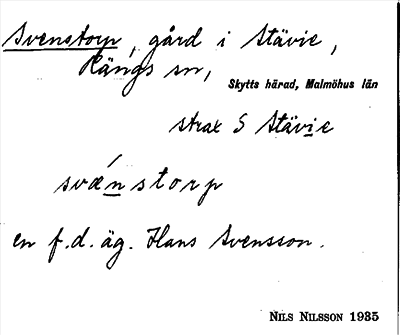 Svenstorp, gård i Stävie,
Rängs sn,
Skytts härad, Malmöhus län
strax S Stävie
svǽnstorp
en f.d. äg. Hans Svensson.
NILS NILSSON 1935